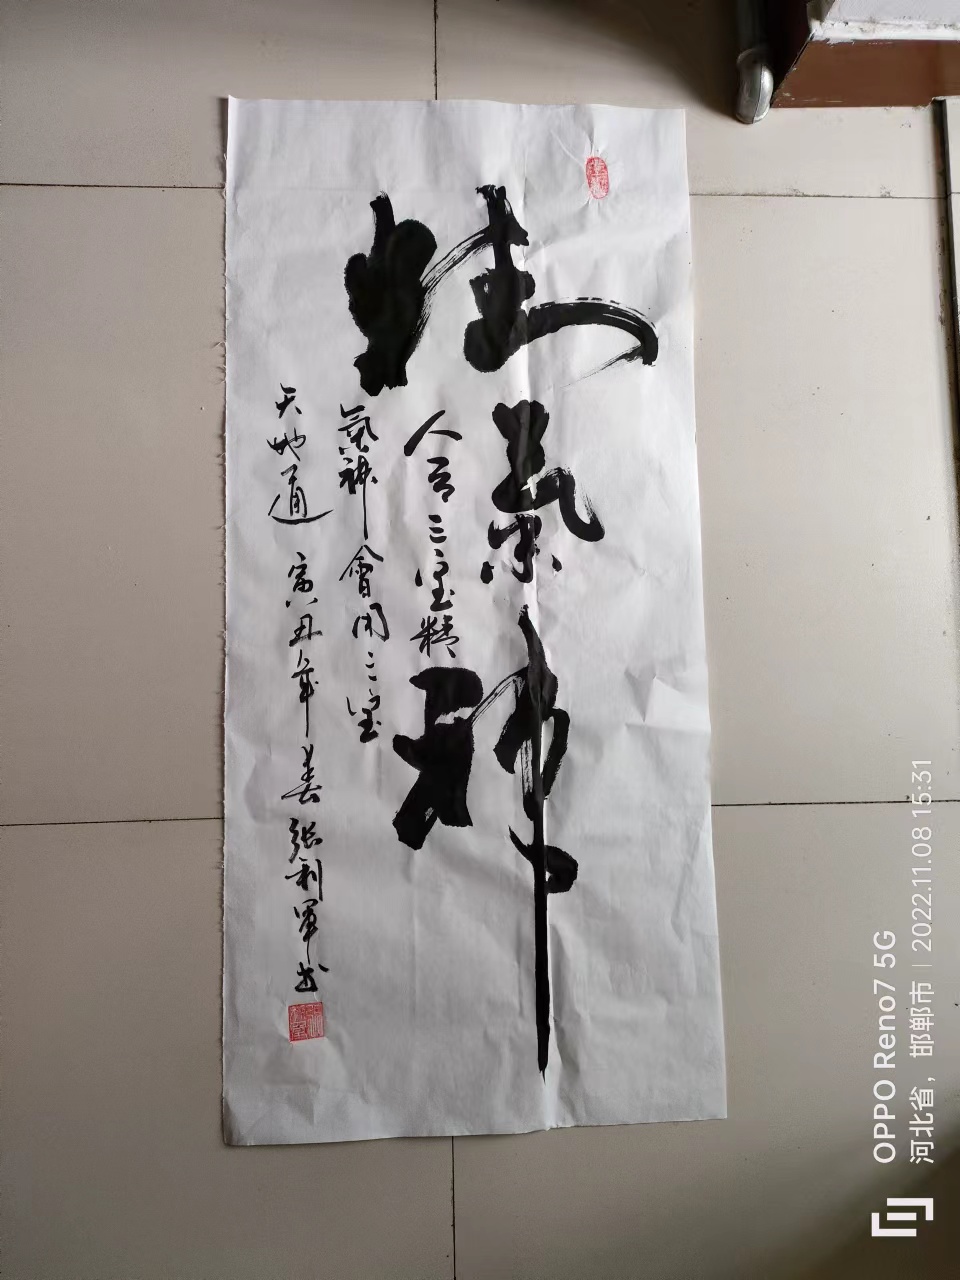 精氣神
人有三寶精
氣神會用三寶
天地通 寅丑年春 张利軍书
OPPO Reno7 5G
河北省，邯郸市 | 2022.11.08 15:31